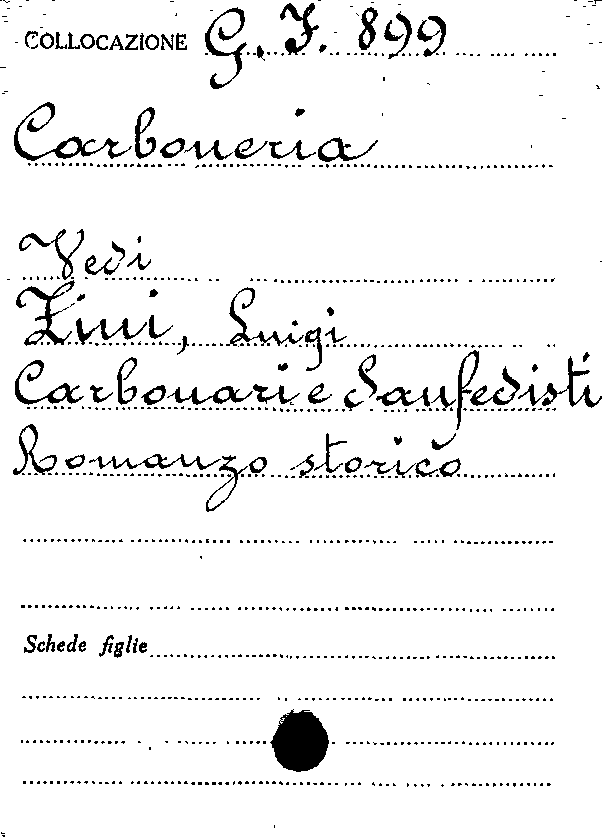 COLLOCAZIONE G. I. 899
Carboneria
Vedi
Zini, Luigi
Carbonari e Sanfedisti
Romanzo storico
Schede figlie